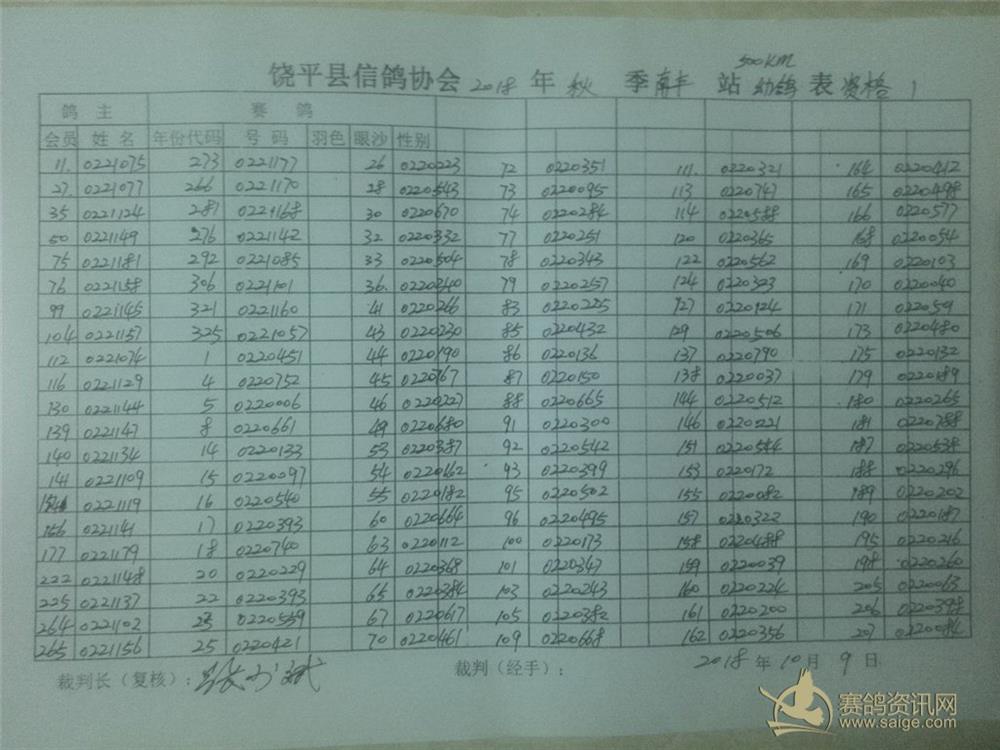 500KM
饶平县信鸽协会 2018 年 秋 季 南丰 站 幼鸽 表 资格 1
鸽 主 赛 鸽
会员 姓 名 年份代码 号 码 羽色 眼沙 性别
11. 0221075 273 0221177 26 0220223 72 0220351 111. 0220321 164 0220412
27. 0221077 266 0221170 28 0220543 73 0220095 113 0220747 165 0220498
35 0221124 281 0221168 30 0220670 74 0220284 114 0220588 166 0220577
50 0221149 276 0221142 32 0220332 77 0220251 120 0220365 168 0220054
75 0221181 292 0221085 33 0220504 78 0220343 122 0220562 169 0220103
76 0221158 306 0221101 36. 0220240 79 0220257 124 0220323 170 0220040
99 0221145 321 0221160 41 0220266 83 0220225 127 0220124 171 022050
104 0221157 325 0221057 43 0220230 85 0220432 129 0220506 173 0220480
112 0221074 1 0220451 44 0220190 86 0220136 137 0220790 175 0220132
116 0221129 4 0220752 45 0220767 87 0220150 138 0220037 179 0220189
130 0221144 5 0220006 46 0220227 88 0220665 144 0220512 180 0220265
139 0221147 8 0220661 49 0220680 91 0220300 146 0220221 181 0220788
140 0221134 14 0220133 53 0220387 92 0220542 151 0220544 187 0220538
141 0221109 15 0220097 54 0220662 93 0220399 153 0220172 188 0220296
0221119 16 0220540 55 0220182 95 0220502 155 0220082 189 0220202
156 0221141 17 0220393 60 0220664 96 0220495 157 0220322 190 0220187
177 0221179 18 0220740 63 0220112 100 0220173 158 0220488 195 0220216
222 0221148 20 0220229 64 0220368 101 0220347 159 0220039 198 0220260
225 0221137 22 0220393 65 0220384 103 0220243 160 0220224 205 0220063
264 0221102 23 0220559 67 0220617 105 0220382 161 0220200 206 0220398
265 0221156 25 0220421 70 0220461 109 0220668 162 0220356 207 0220084
裁判长（复核）： 裁判（经手）： 2018 年 10 月 9 日
赛鸽资讯网
www.saige.com